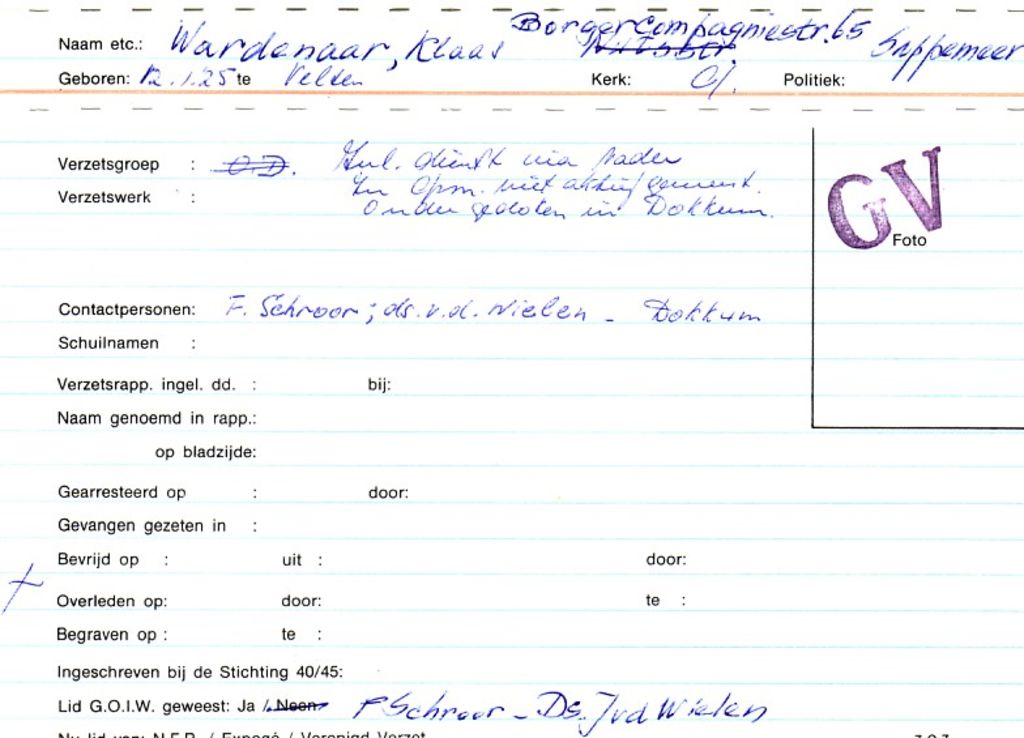 Borgercompagniestr. 65
Naam etc.: Wardenaar, Klaas Sappemeer
Geboren: 12.1.25 te Velsen Kerk: Politiek:
Verzetsgroep : O.D. Inl. dienst via vader
In Gron. niet aktief geweest.
Verzetswerk :
Ondergedoken in Dokkum.
GV
Foto
Contactpersonen: F. Schroor; ds. v.d. Wielen - Dokkum
Schuilnamen :
Verzetsrapp. ingel. dd. : bij:
Naam genoemd in rapp.:
op bladzijde:
Gearresteerd op : door:
Gevangen gezeten in :
Bevrijd op : uit : door:
Overleden op: door: te :
Begraven op : te :
Ingeschreven bij de Stichting 40/45:
Lid G.O.I.W. geweest: Ja / Neen F Schroor - Ds. J vd Wielen